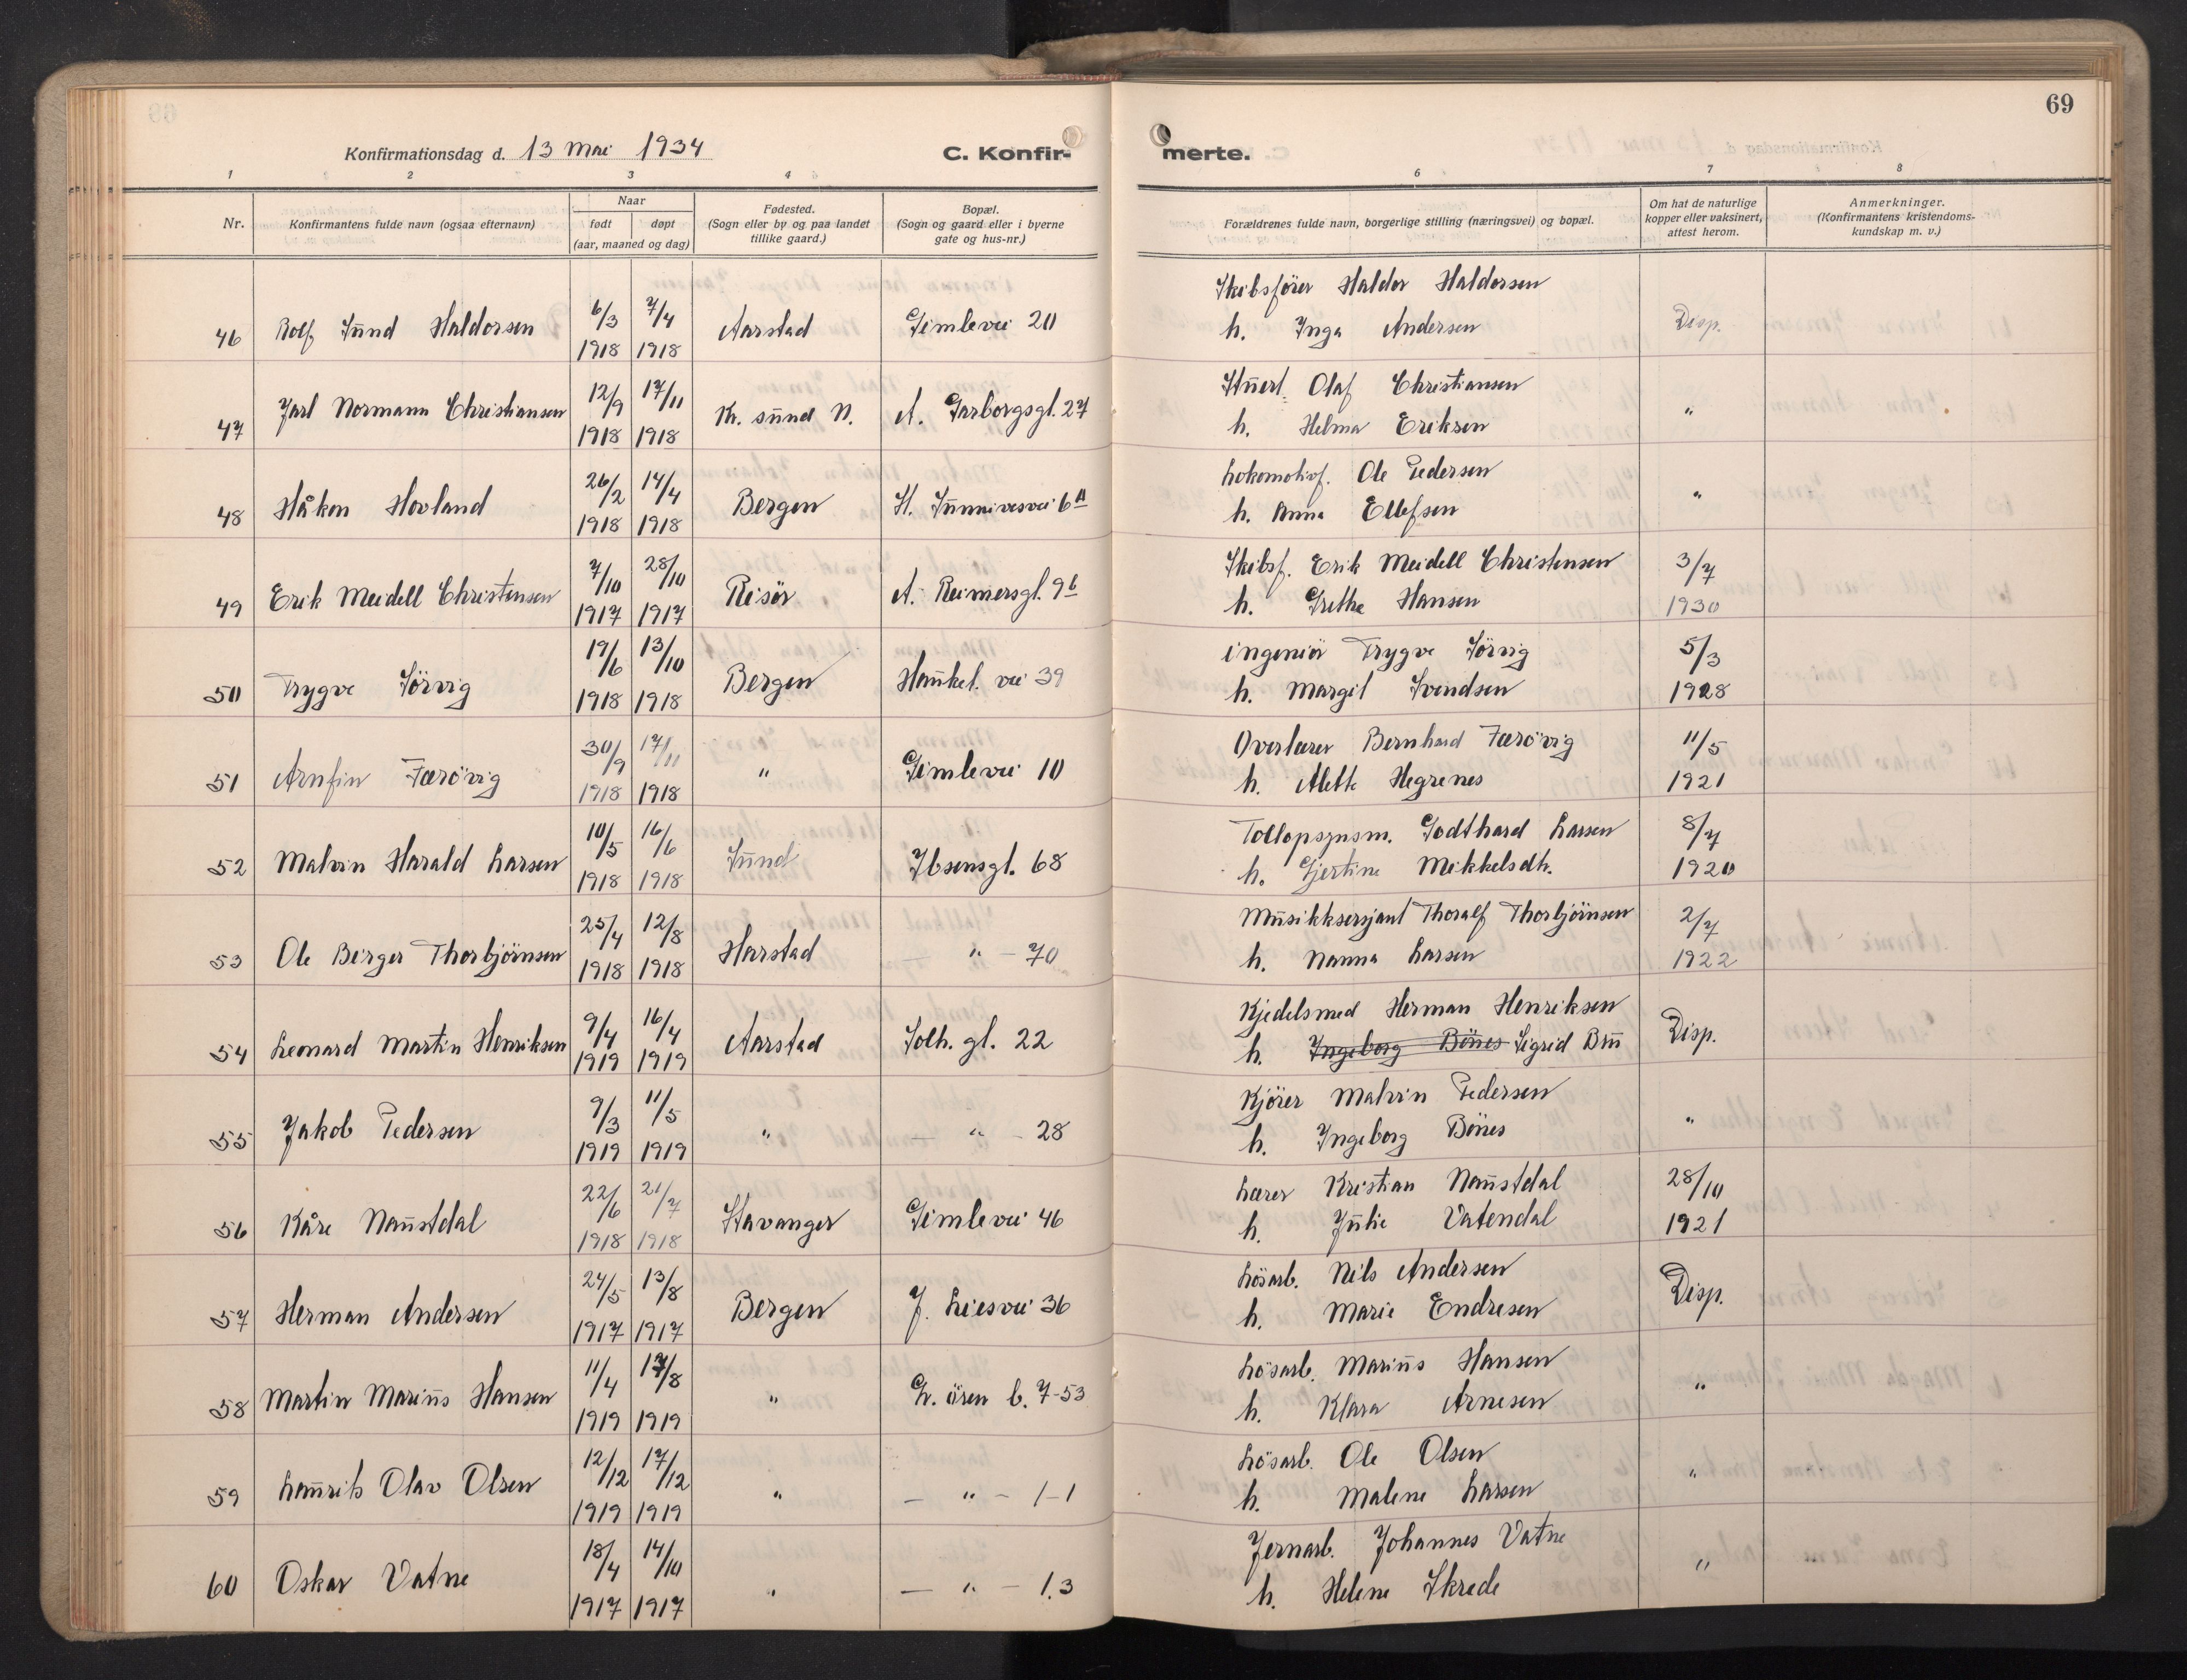 69
Konfirmationsdag d. 13 mai 1934
C. Konfir-
merte.
1 2 3 4 6 7 8
Nr.
Konfirmantens fulde navn (ogsaa efternavn)
Naar
født døpt
(aar, maaned og dag)
Fødested.
(Sogn eller by og paa landet
tillike gaard.)
Bopæl.
(Sogn og gaard eller i byerne
gate og hus-nr.)
Forældrenes fulde navn, borgerlige stilling (næringsvei) og bopæl.
Om hat de naturlige
kopper eller vaksinert,
attest herom.
Anmerkninger.
(Konfirmantens kristendoms-
kundskap m. v.)
Skibsfører Haldor Haldorsen
46 Rolf Sund Haldorsen 6/3 1918 7/4 1918 Aarstad Gimlevei 20
h. Inga Andersen Disp.
Stuert. Olaf Christiansen
47 Jarl Normann Christiansen 12/9 1918 17/11 1918 Kr. sund N. A. Garborgsgt. 27
h. Helma Eriksen "
Lokomotivf. Ole Pedersen
48 Håkon Hovland 26/2 1918 14/4 1918 Bergen St. Sunnivesvei 6A
h. Anna Ellefsen "
Skibsf. Erik Meidell Christensen 3/7
49 Erik Meidell Christensen 7/10 1917 28/10 1917 Risör A. Reimersgt. 9b
h. Grethe Hansen 1930
ingeniör Trygve Sörvig 5/3
50 Trygve Sörvig 19/6 1918 13/10 1918 Bergen Haukel. vei 39
h. Margit Svendsen 1928
Overlærer Bernhard Færövig 11/5
51 Arnfin Færövig 30/9 1918 17/11 1918 " Gimlevei 10
h. Alette Hegrenes 1921
Tollopsynsm. Godthard Larsen 8/7
52 Malvin Harald Larsen 10/5 1918 16/6 1918 Sund Ibsensgt. 68
h. Gjertine Mikkelsdtr. 1920
Musikksersjant Thoralf Thorbjörnsen 2/7
53 Ole Birger Thorbjörnsen 25/4 1918 12/8 1918 Harstad — " — 70
h. Nanna Larsen 1922
Kjedelsmed Herman Henriksen
54 Leonard Martin Henriksen 9/4 1919 16/4 1919 Aarstad Solh. gt. 22
h. Ingeborg Bönes Sigrid Bru Disp.
Kjörer Malvin Pedersen
55 Jakob Pedersen 9/3 1919 11/5 1919 " — " — 28
h. Ingeborg Bönes "
Lærer Kristian Naustdal 28/10
56 Kåre Naustdal 22/6 1918 21/7 1918 Stavanger Gimlevei 46
h. Julie Vatendal 1921
Lösarb. Nils Andersen
57 Herman Andersen 24/5 1917 13/8 1917 Bergen J. Liesvei 36
h. Marie Endresen Disp.
Lösarb. Marius Hansen
58 Martin Marius Hansen 11/4 1919 17/8 1919 " L. ören b. 7-53
h. Klara Arnesen "
Lösarb. Ole Olsen
59 Laurits Olav Olsen 12/12 1919 17/12 1919 " — " — 1-1
h. Malene Larsen "
Jernarb. Johannes Vatne
60 Oskar Vatne 18/4 1917 14/10 1917 " — " — 1.3
h. Helene Skrede "